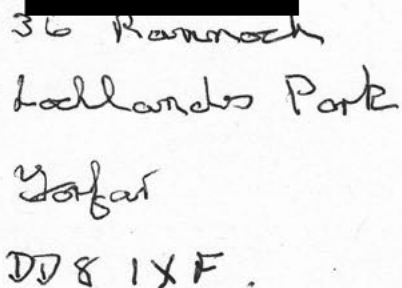 36 Rannoch
Lochlands Park
Forfar
DD8 1XF.